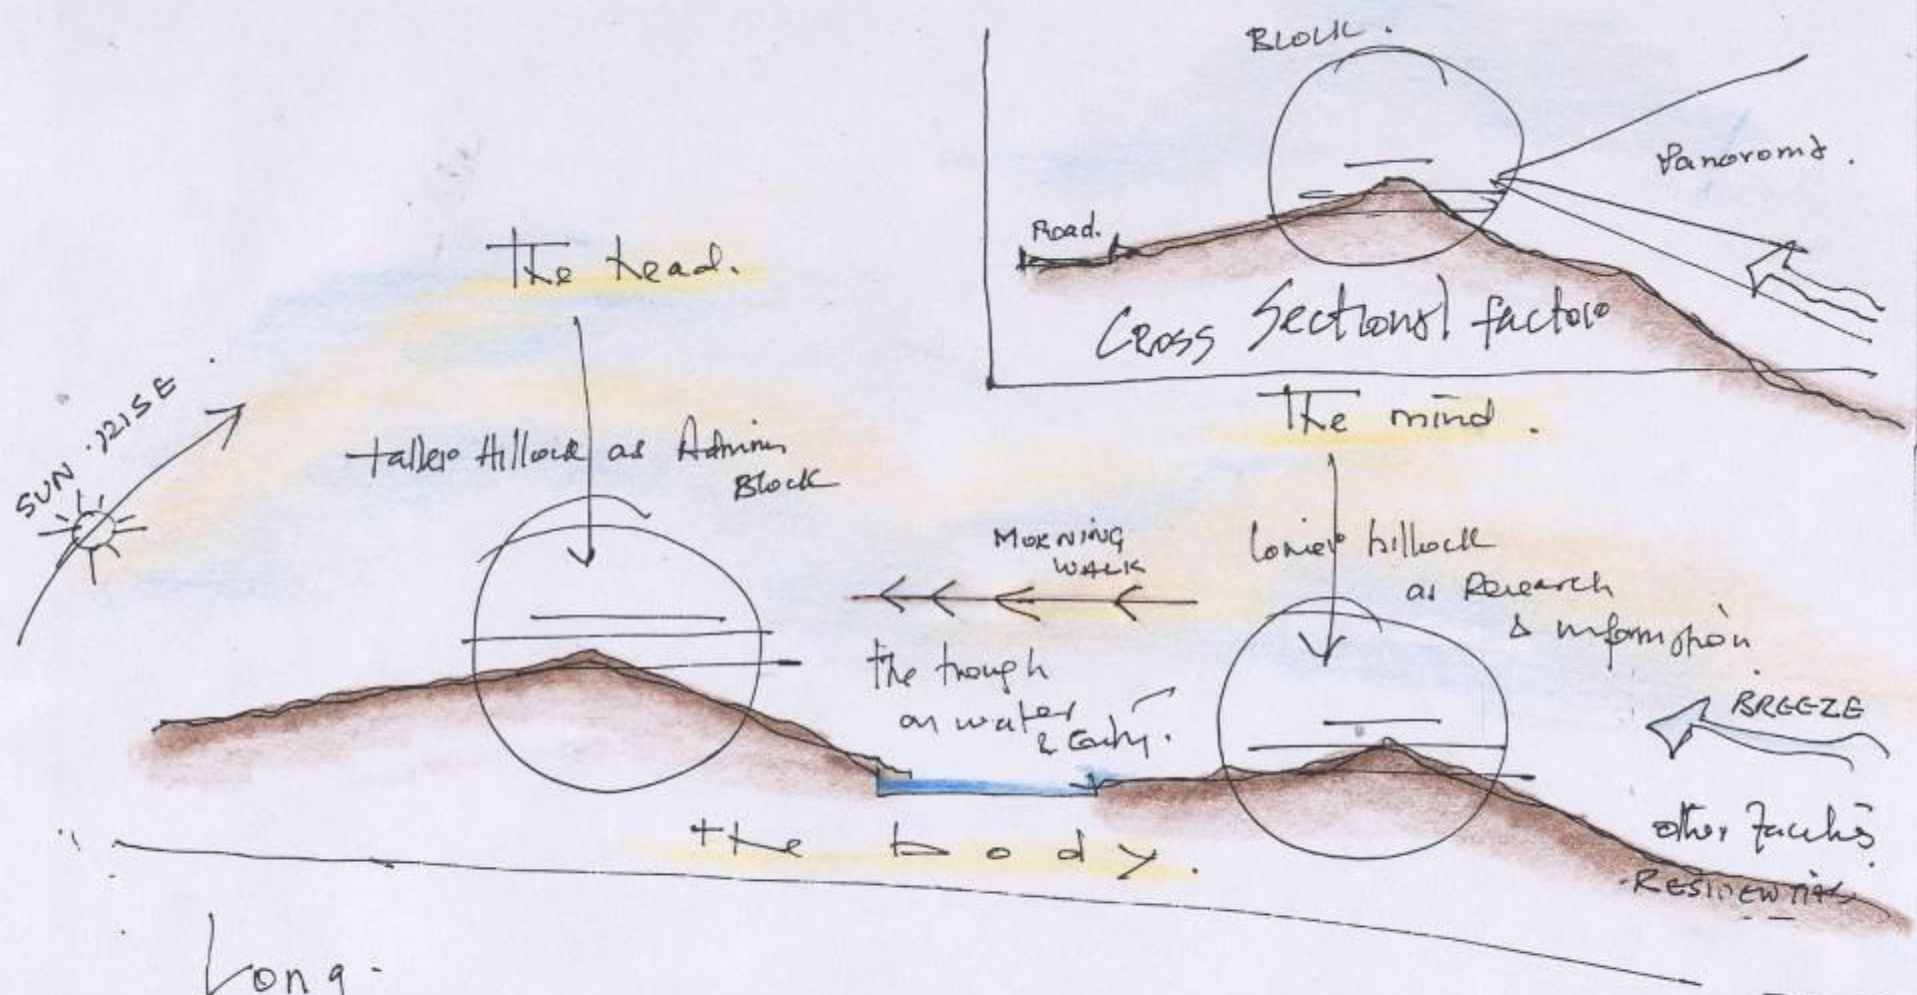 BLOCK.
Panoroma.
Road.
Cross Sectional factors
The head.
SUN RISE.
taller Hillock as Admin
Block
The mind.
MORNING
WALK
lower hillock
as Research
& information
the trough
as water
&
BREEZE
other facilities
RESIDENTIAL
the body.
Long.